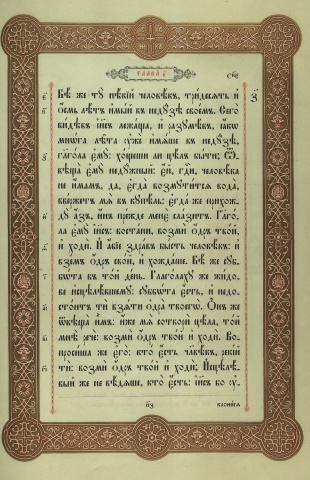 глава̀ є҃
Бѣ́ же тꙋ̀ нѣ́кїй человѣ́къ, три́десѧть и҆
ѻ҆́смь лѣ́тъ и҆мы́й въ недꙋ́зѣ свое́мъ. Сего̀
ви́дѣвъ і҆и҃съ лежа́ща, и҆ разꙋмѣ́въ, ꙗ҆́кѡ
мнѡ́га лѣ̑та ᲂу҆жѐ и҆мѧ́ше въ недꙋ́зѣ,
глаго́ла є҆мꙋ̀: хо́щеши ли цѣ́лъ бы́ти; Ѿ-
вѣща̀ є҆мꙋ̀ недꙋ́жный: є҆́й, гд҇и, человѣ́ка
не и҆́мамъ, да, є҆гда̀ возмꙋти́тсѧ вода̀,
вве́ржетъ мѧ̀ въ кꙋпѣ́ль: є҆гда́ же прихож-
дꙋ̀ а҆́зъ, и҆́нъ пре́жде менє̀ сла́зитъ. Глаго́-
ла є҆мꙋ̀ і҆и҃съ: воста́ни, возмѝ ѻ҆́дръ тво́й
и҆ ходѝ. И҆ а҆́бїе здра́въ бы́сть человѣ́къ: и҆
взе́мъ ѻ҆́дръ сво́й, и҆ хожда́ше. Бѣ́ же сꙋб-
бѡ́та въ то́й де́нь. Глаго́лахꙋ же жи́до-
ве и҆сцѣлѣ́вшемꙋ: сꙋббѡ́та є҆́сть, и҆ не до-
сто́итъ тѝ взѧ́ти ѻ҆дра̀ твоегѡ̀. Ѻ҆́нъ же
ѿвѣща̀ и҆̀мъ: и҆́же мѧ̀ сотворѝ цѣ́ла, то́й
мнѣ̀ речѐ: возмѝ ѻ҆́дръ тво́й и҆ ходѝ. Во-
проси́ша же є҆го̀: кто̀ є҆́сть чл҃вѣ́къ, реки́й
тѝ: возмѝ ѻ҆́дръ тво́й и҆ ходѝ; И҆сцѣлѣ́-
вый же не вѣ́дѧше, кто̀ є҆́сть: і҆и҃съ бо ᲂу҆-
клони́сѧ